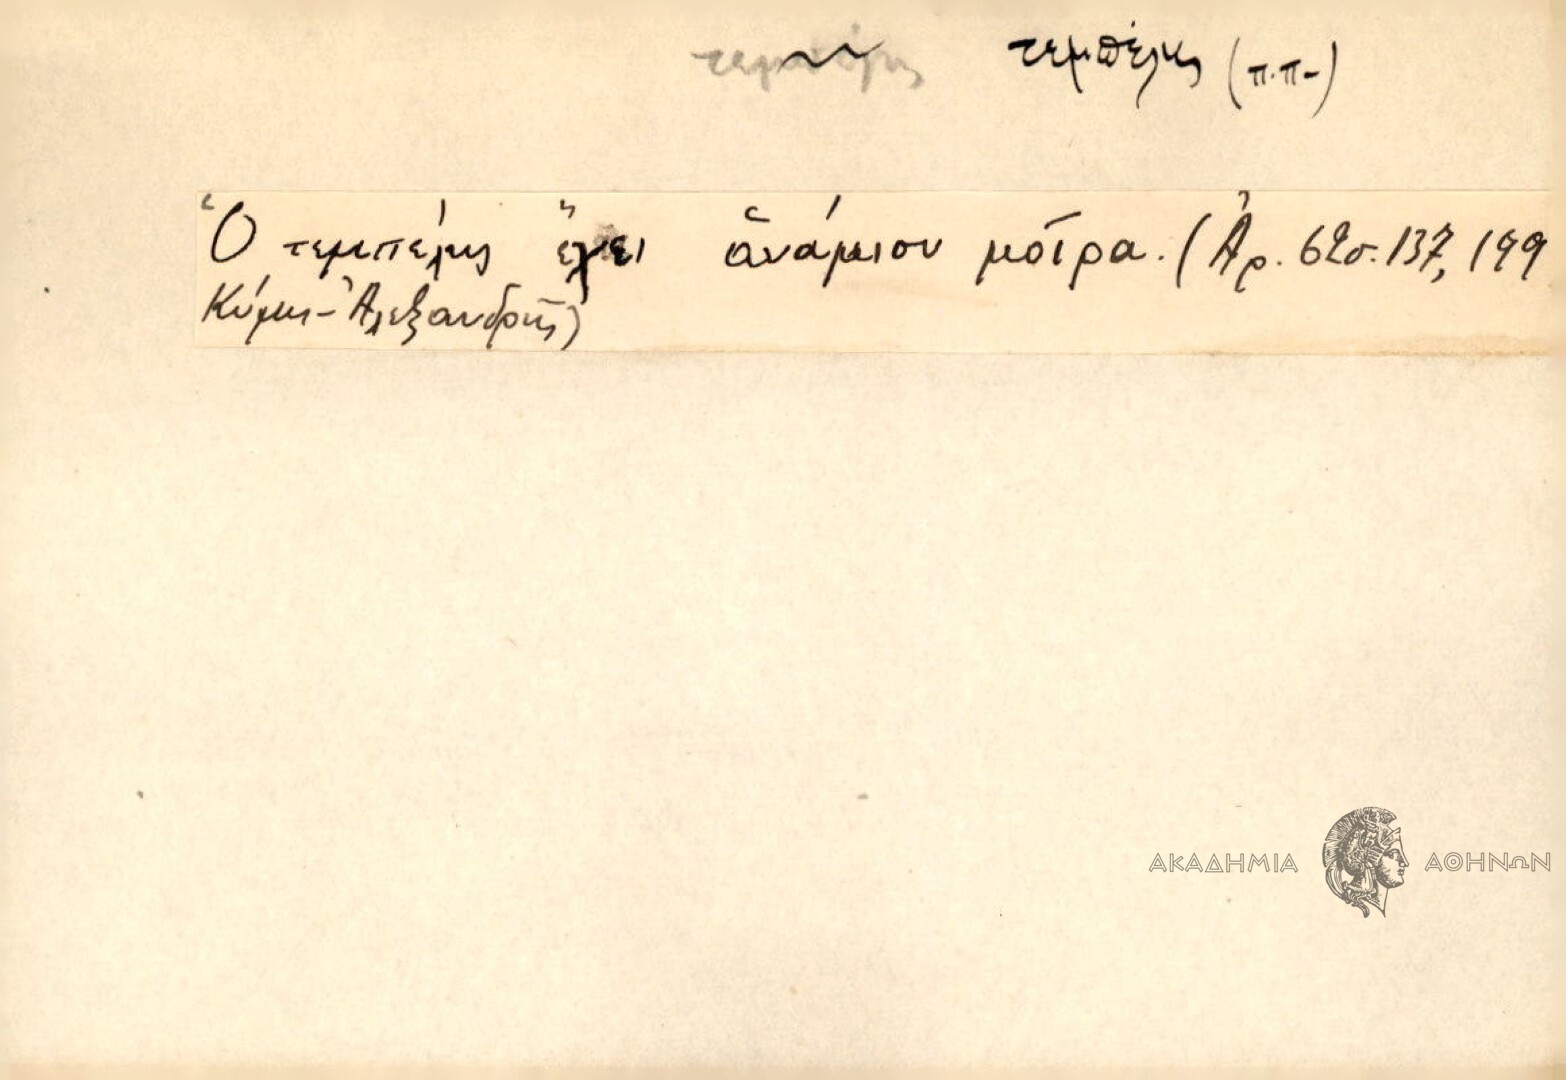 τεμπέλης τεμπέλης (π.π-)
Ὁ τεμπέλης ἔχει ἀνάμιου μοῖρα. (Ἀρ. 62 σ. 137, 199
Κύμης - Ἀλεξανδρῆς)
ΑΚΑΔΗΜΙΑ ΑΘΗΝΩΝ